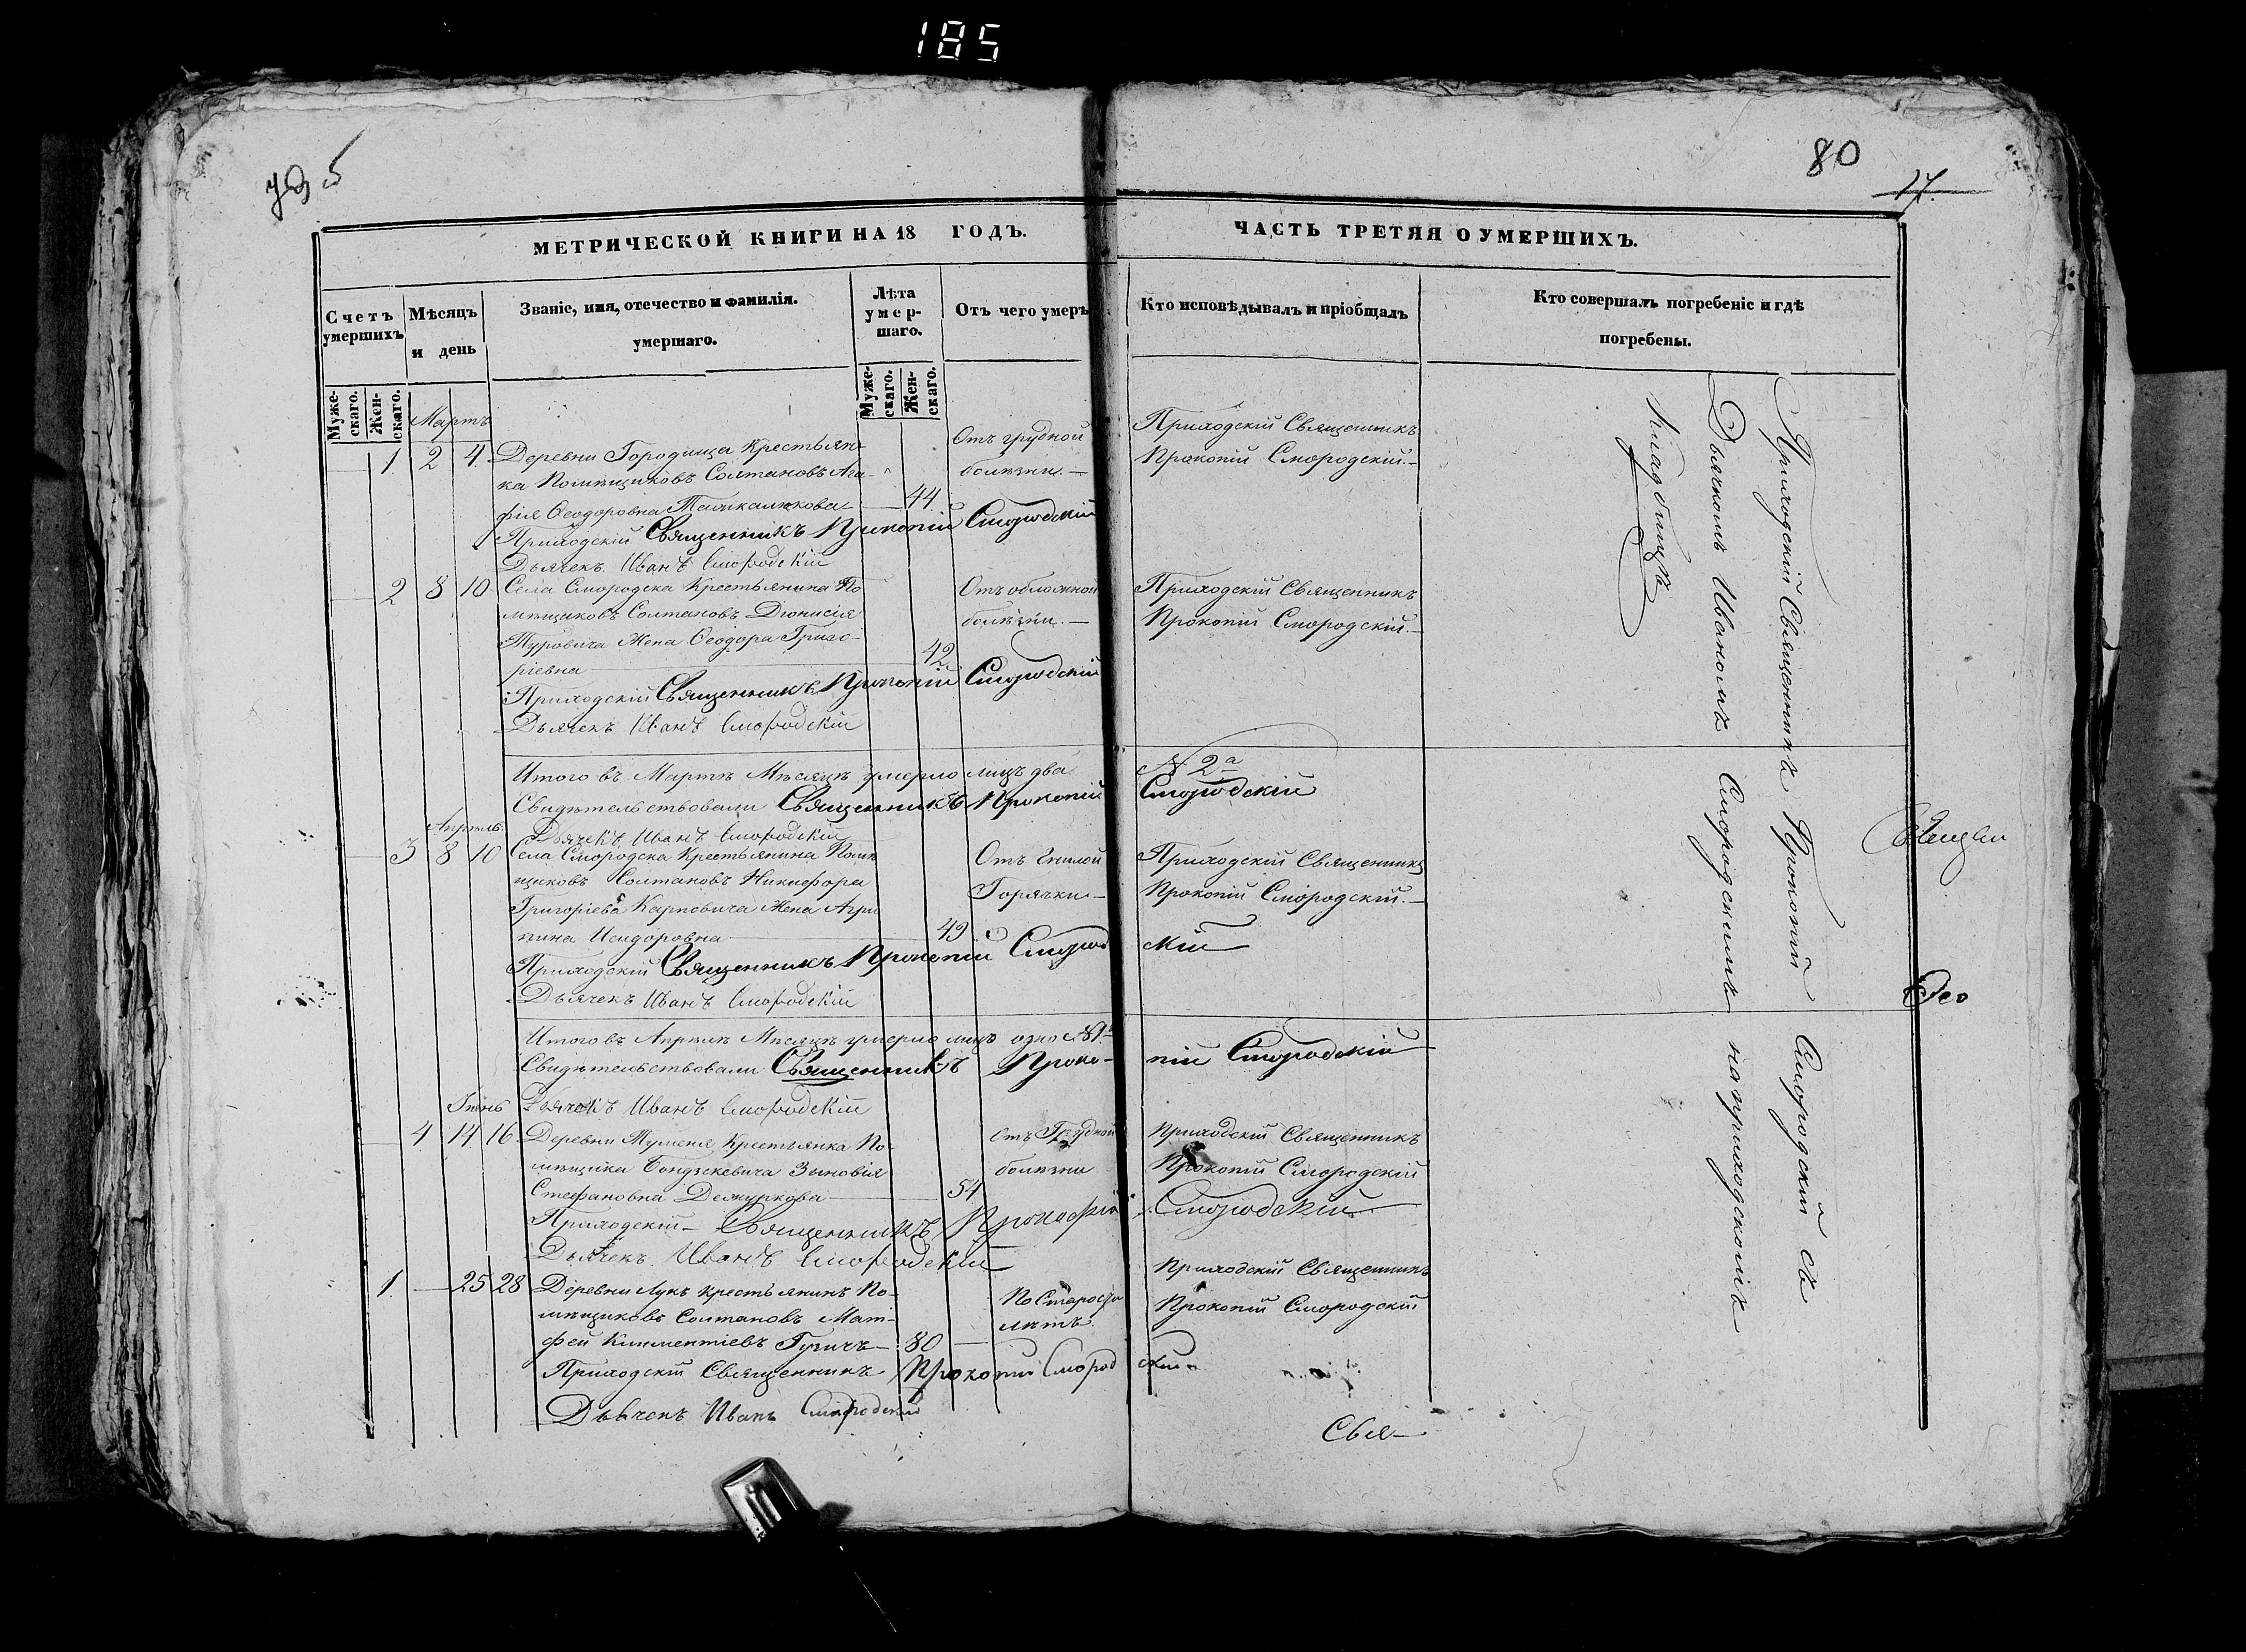 185
80
17.
МЕТРИЧЕСКОЙ КНИГИ НА 18 ГОДЪ.
ЧАСТЬ ТРЕТЯЯ О УМЕРШИХЪ.
Счетъ умершихъ.
Мѣсяцъ и день
Званіе, имя, отечество и фамилія.
умершаго.
Лѣта умер-
шаго.
Отъ чего умеръ
Кто исповѣдывалъ и пріобщалъ
Кто совершалъ погребеніе и гдѣ
погребены.
Муже-
скаго.
Жен-
скаго.
Муже-
скаго.
Жен-
скаго.
Мартъ
1. 2 4. Деревни Городища Крестьян- Отъ грудной Приходскій Священникъ
ка Помѣщиковъ Солтановъ Ага- болѣзни. — Прокопій Смородскій. —
фія Ѳеодоровна 44
Приходскій Священникъ Прокопій Смородскій
Дьячекъ Иванъ Смородскій
2 8 10 Села Смородска Крестьянина По Отъ обложной Приходскій Священникъ
мѣщиковъ Солтановъ Діонисія болѣзни. — Прокопій Смородскій. —
Туровича Жена Ѳеодора Григо-
ріевна 42
Приходскій Священникъ Прокопій Смородскій
Дьячекъ Иванъ Смородскій
Итого въ Мартѣ Мѣсяцѣ умерло лицъ два № 2а
Свидѣтельствовали Священникъ Прокопій Смородскій
Дьячекъ Иванъ Смородскій
Апрѣль
3 8 10 Села Смородска Крестьянина Помѣ Отъ Гнилой Приходскій Священникъ
щиковъ Солтановъ Никифора Горячки — Прокопій Смородскій. —
Григоріева Карповича Жена Агри
пина Исидоровна 49
Приходскій Священникъ Прокопій Смород скій
Дьячекъ Иванъ Смородскій
Итого въ Апрѣлѣ Мѣсяцѣ умерло лицъ одно №1
Свидѣтельствовали Священникъ Проко- пій Смородскій
Дьячекъ Иванъ Смородскій
Іюнь
4 14 16 Деревни Крестьянка По- Отъ Грудной Приходскій Священникъ
мѣщика Зыновія болѣзни Прокопій Смородскій
Стефановна 54
Приходскій — Священникъ Смородскій
Дьячекъ Иванъ Смородскій
1. — 25 28 Деревни Лукъ крестьянинъ По- По Старости Приходскій Священникъ
мѣщиковъ Солтановъ Мат- лѣтъ. Прокопій Смородскій
фей Климентіевъ 80 —
Приходскій Священникъ Прокопій Смород скій
Дьячекъ Иванъ Смородскій
Приходскій Священникъ Прокопій Смородскій съ
Дьячкомъ Иваномъ Смородскимъ на приходскомъ
кладбищѣ
Ѳео
Свя-